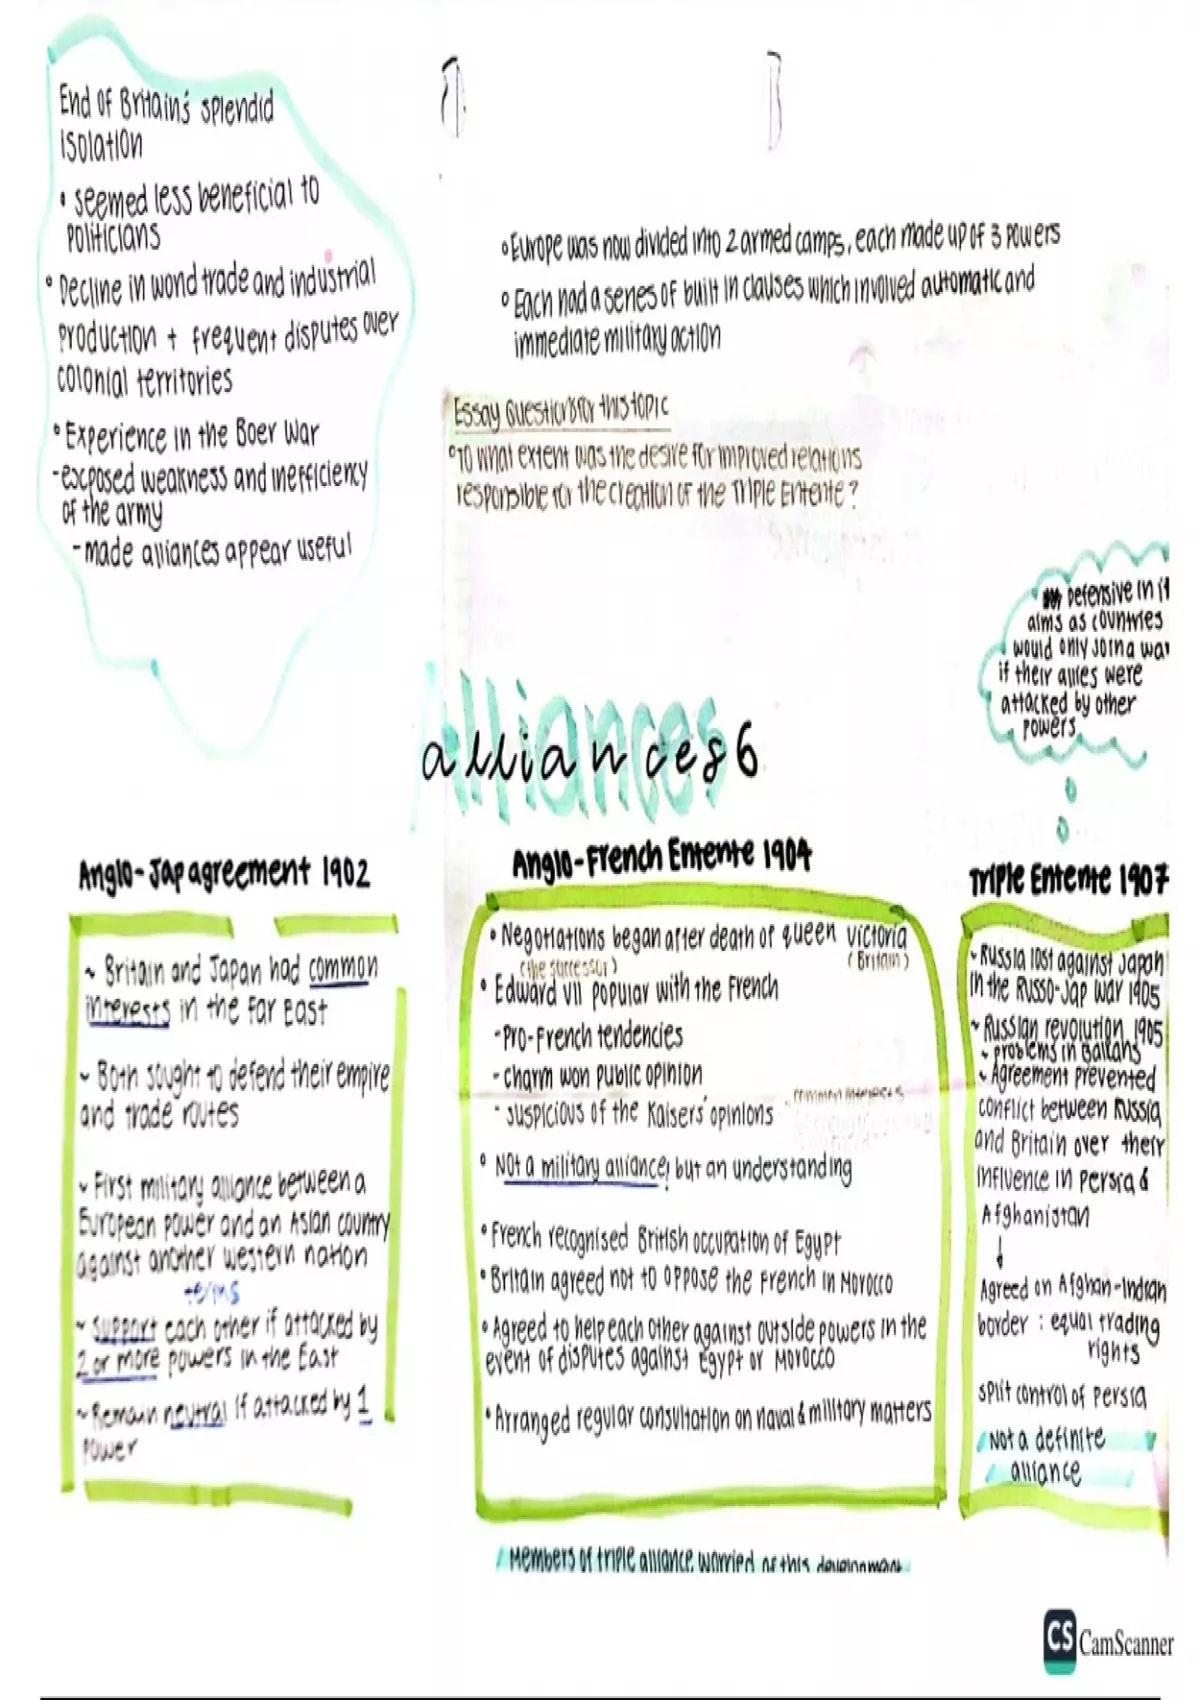 End of Britain's splendid
isolation
• seemed less beneficial to
politicians
• Decline in world trade and industrial
production + frequent disputes over
colonial territories
• Experience in the Boer War
- exposed weakness and inefficiency
of the army
- made alliances appear useful
• Europe was now divided into 2 armed camps, each made up of 3 powers
• Each had a series of built in clauses which involved automatic and
immediate military action
Essay Questions for this topic
• To what extent was the desire for improved relations
responsible for the creation of the Triple Entente?
Defensive in it
aims as countries
would only join a war
if their allies were
attacked by other
powers
Alliances
alliances 6
Anglo-Jap agreement 1902
~ Britain and Japan had common
interests in the far East
~ Both sought to defend their empire
and trade routes
~ First military alliance between a
European power and an Asian country
against another western nation
terms
~ support each other if attacked by
2 or more powers in the East
~ Remain neutral if attacked by 1
power
Anglo-French Entente 1904
• Negotiations began after death of queen Victoria
(the successor) (Britain)
• Edward VII popular with the French
- Pro-French tendencies
- charm won public opinion
- suspicious of the Kaisers' opinions
common interests
• Not a military alliance, but an understanding
• French recognised British occupation of Egypt
• Britain agreed not to oppose the French in Morocco
• Agreed to help each other against outside powers in the
event of disputes against Egypt or Morocco
• Arranged regular consultation on naval & military matters
Members of triple alliance worried of this development
Triple Entente 1907
~ Russia lost against Japan
in the Russo-Jap war 1905
~ Russian revolution 1905
~ problems in Balkans
~ Agreement prevented
conflict between Russia
and Britain over their
influence in Persia &
Afghanistan
↓
Agreed on Afghan-Indian
border : equal trading
rights
split control of Persia
Not a definite
alliance
CS CamScanner